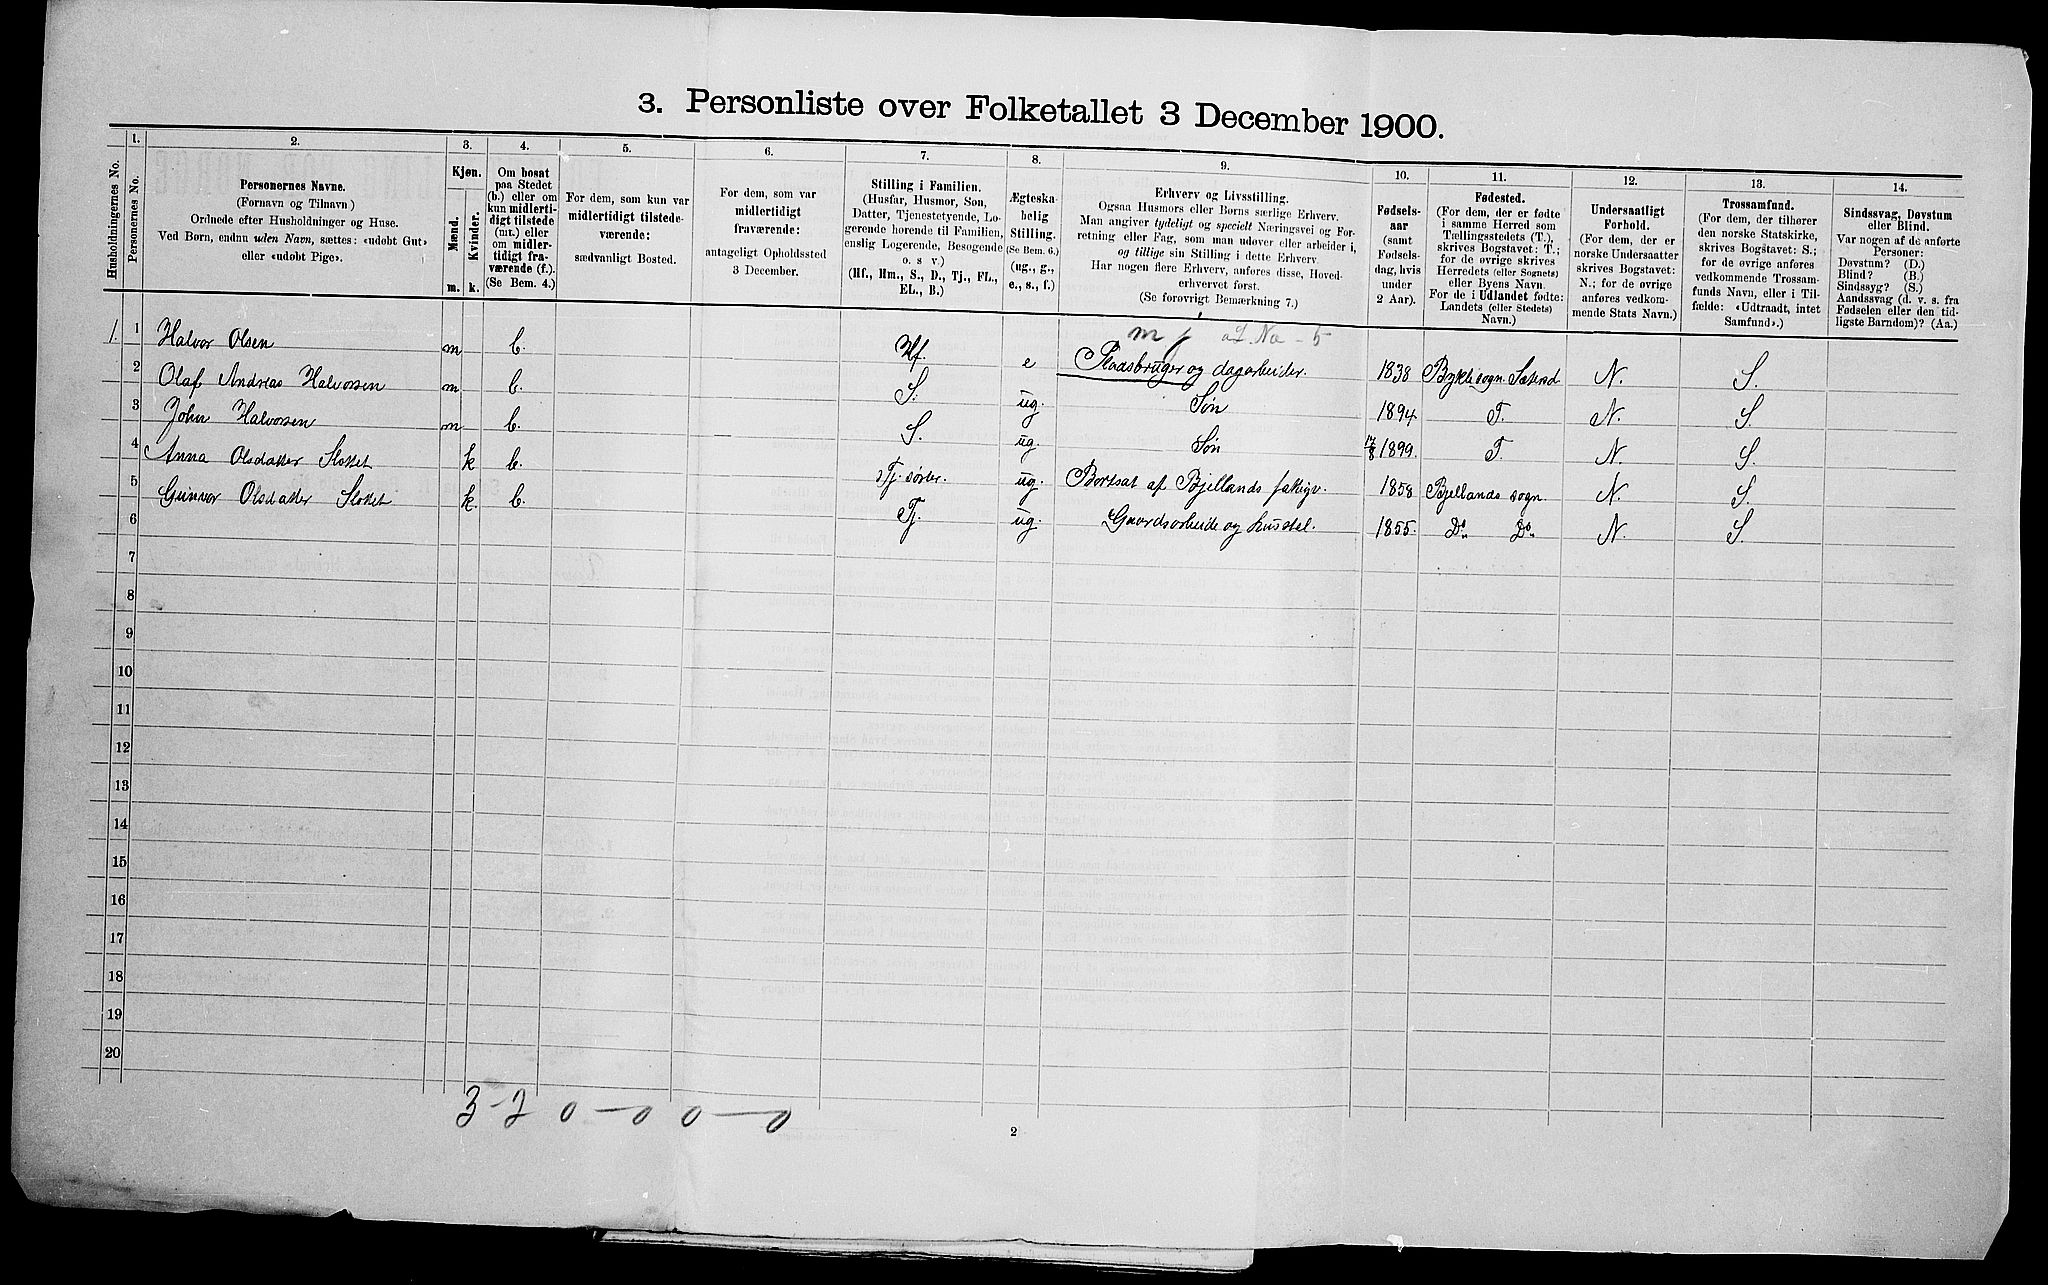 3. Personliste over Folketallet 3 December 1900.
1. 2. 3. 4. 5. 6. 7. 8. 9. 10. 11. 12. 13. 14.
Husholdningernes No.
Personernes No.
Personernes Navne.
(Fornavn og Tilnavn)
Ordnede efter Husholdninger og Huse.
Ved Børn, endnu uden Navn, sættes: «udøbt Gut»
eller «udøbt Pige».
Kjøn.
Mænd.
Kvinder.
m. k.
Om bosat
paa Stedet
(b.) eller om
kun midlerti-
digt tilstede
(mt.) eller
om midler-
tidigt fra-
værende (f.).
(Se Bem. 4.)
For dem, som kun var
midlertidigt tilstede-
værende:
sædvanligt Bosted.
For dem, som var
midlertidigt
fraværende:
antageligt Opholdssted
3 December.
Stilling i Familien.
(Husfar, Husmor, Søn,
Datter, Tjenestetyende, Lo-
gerende hørende til Familien,
enslig Logerende, Besøgende
o. s v.)
(Hf., Hm., S., D., Tj., FL.,
EL., B.)
Ægteska-
belig
Stilling.
(Se Bem. 6.)
(ug., g.,
e., s., f.)
Erhverv og Livsstilling.
Ogsaa Husmors eller Børns særlige Erhverv.
Man angiver tydeligt og specielt Næringsvei og For-
retning eller Fag, som man udøver eller arbeider i,
og tillige sin Stilling i dette Erhverv.
Har nogen flere Erhverv, anføres disse, Hoved-
erhvervet først.
(Se forøvrigt Bemærkning 7.)
Fødsels-
aar
(samt
Fødsels-
dag, hvis
under
2 Aar).
Fødested.
(For dem, der er fødte
i samme Herred som
Tællingsstedets (T.),
skrives Bogstavet: T.;
for de øvrige skrives
Herredets (eller Sognets)
eller Byens Navn.
For de i Udlandet fødte:
Landets (eller Stedets)
Navn.)
Undersaatligt
Forhold.
(For dem, der er
norske Undersaatter
skrives Bogstavet:
N.; for de øvrige
anføres vedkom-
mende Stats Navn.)
Trossamfund.
(For dem, der tilhører
den norske Statskirke,
skrives Bogstavet: S.;
for de øvrige anføres
vedkommende Trossam-
funds Navn, eller i Til-
fælde: «Udtraadt, intet
Samfund».)
Sindssvag, Døvstum
eller Blind.
Var nogen af de anførte
Personer:
Døvstum? (D.)
Blind? (B.)
Sindssyg? (S.)
Aandssvag (d. v. s. fra
Fødselen eller den tid-
ligste Barndom)? (Aa.)
1. 1 Halvor Olsen m b. Hf. e Pladsbruger og dagarbeider. 1838 Bykle sogn N. S.
2 Olaf Andreas Halvorsen m b. S. ug. Søn 1894 T. N. S.
3 John Halvorsen m b. S. ug. Søn 17/8 1899. T. N. S.
4 Anna Olsdatter k b. ug. Bortsat af Bjellands 1858 Bjellands sogn N. S.
5 Gunvor Olsdatter k. b. Tj. ug. Gaardsarbeide og husstel. 1855. Do Do N. S.
6
7
8
9
10
11
12
13
14
15
16
17
18
19
20
3-2 0-0 0-0
2